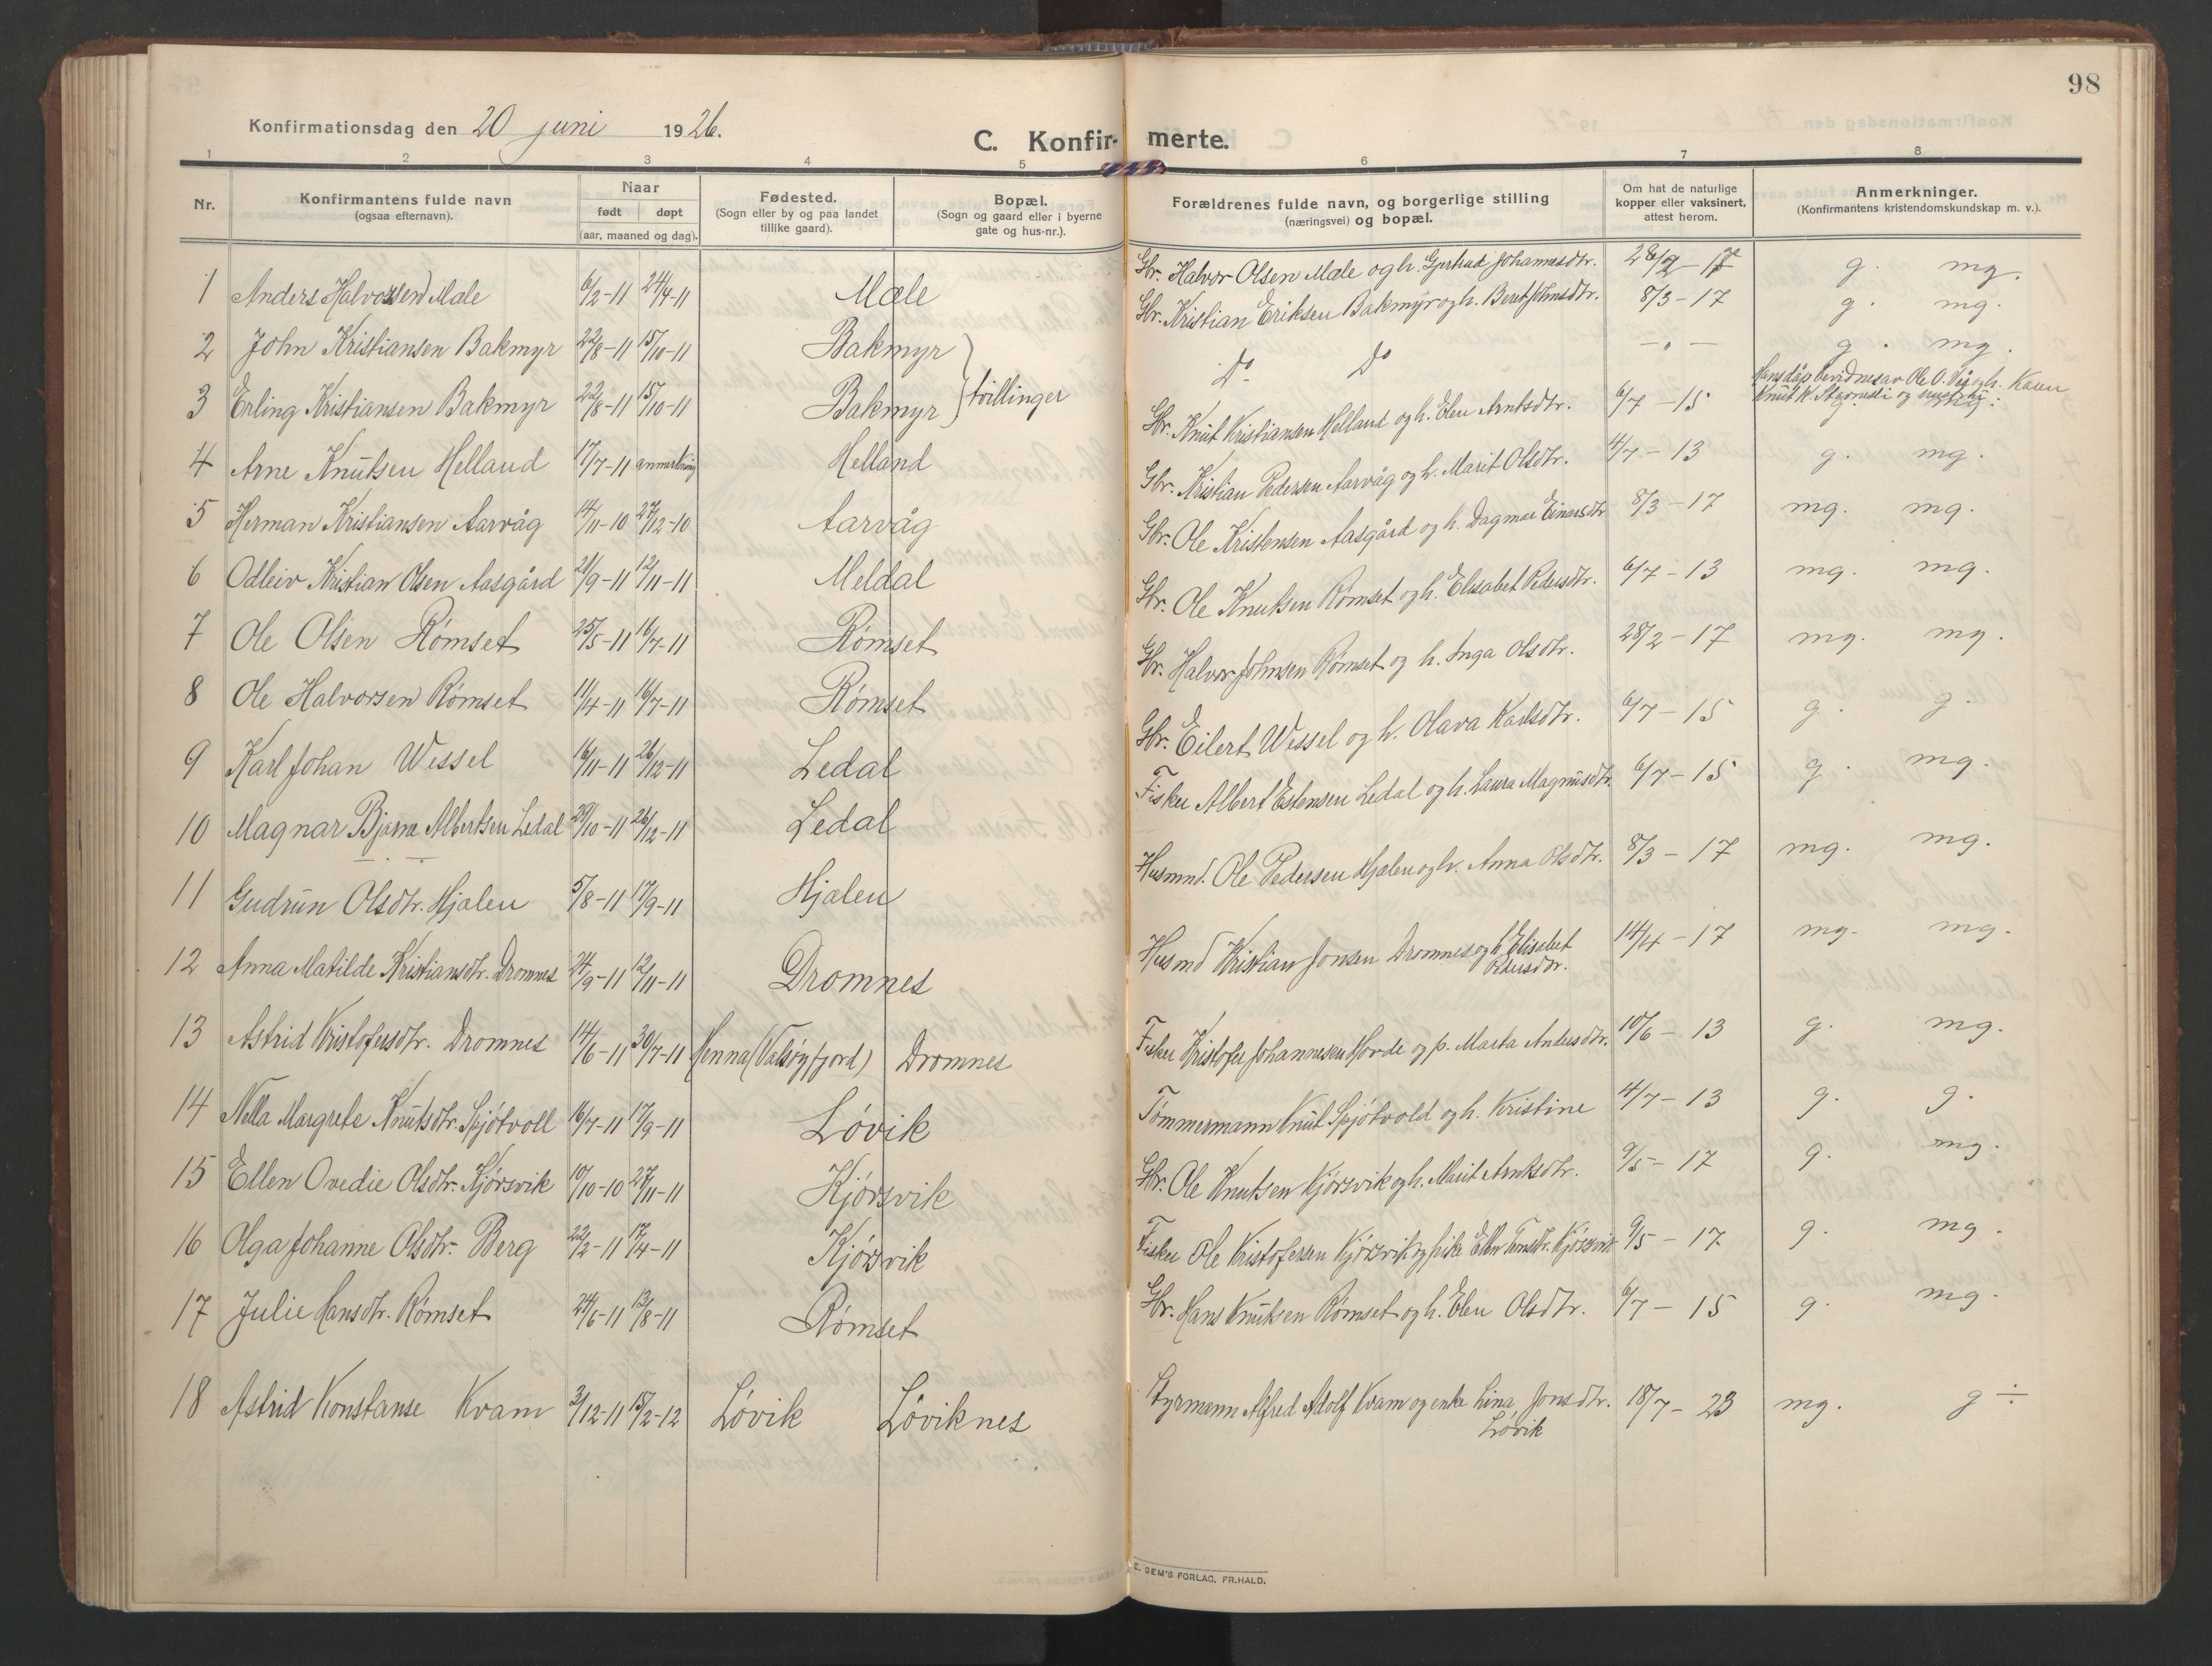 98
Konfirmationsdag den 20 juni 1926.
C. Konfir- merte.
1 2 3 4 5 6 7 8
Nr. Konfirmantens fulde navn (ogsaa efternavn). Naar født døpt (aar, maaned og dag). Fødested. (Sogn eller by og paa landet tillike gaard). Bopæl. (Sogn og gaard eller i byerne gate og hus-nr.). Forældrenes fulde navn, og borgerlige stilling (næringsvei) og bopæl. Om hat de naturlige kopper eller vaksinert, attest herom. Anmerkninger. (Konfirmantens kristendomskundskap m. v.).
1 Anders (Halvorsen) Mæle 6/2-11 24/4-11 Mæle Gbr. Halvor Olsen Mæle og h. Gjertrud Johannesdtr. 28/2-17 g. mg.
2 John Kristiansen Bakmyr 22/8-11 15/10-11 Bakmyr Gbr. Kristian Eriksen Bakmyr og h. Beret Johnsdtr. 8/3-17 g. mg.
3 Erling Kristiansen Bakmyr 22/8-11 15/10-11 Bakmyr } tvillinger Do Do -"- g. mg.
4 Arne Knutsen Helland 17/7-11 anmerkning Helland Gbr. Knut Kristiansen Helland og h. Elen Arntsdtr. 6/7-15 Hans dåp bevidnes av Ole O. Vig og h. Karen
Knut K. og hustru g. mg.
5 Herman Kristiansen Aarvåg 14/11-10 27/12-10 Aarvåg Gbr. Kristian Pedersen Aarvåg og h. Marit Olsdtr. 4/7-13 g. mg.
6 Odleiv Kristian Olsen Aasgård 21/9-11 12/11-11 Meldal Gbr. Ole Kristensen Aasgård og h. Dagmar Einarsdtr 8/3-17 mg. mg.
7 Ole Olsen Rømset 25/5-11 16/7-11 Rømset Gbr. Ole Knutsen Rømset og h. Elisabet Pedersdtr. 6/7-13 mg. mg.
8 Ole Halvorsen Rømset 11/4-11 16/7-11 Rømset Gbr. Halvor Johnsen Rømset og h. Inga Olsdtr. 28/2-17 mg. mg.
9 Karl Johan Wessel 16/11-11 26/12-11 Ledal Gbr. Eilert Wessel og h. Olava Karlsdtr. 6/7-15 g. g.
10 Magnar Bjarne Albertsen Ledal 29/10-11 26/12-11 Ledal Fisker Albert Estensen Ledal og h. Laura Magnusdtr. 6/7-15 g. mg.
11 Gudrun Olsdtr. Hjalen 5/8-11 17/9-11 Hjalen Husmnd. Ole Pedersen Hjalen og h. Anna Olsdtr. 8/3-17 mg. mg.
12 Anna Matilde Kristiansdtr. Dromnes 24/9-11 12/11-11 Dromnes Husmd Kristian Jonsen Dromnes og h. Elisabet
Pedersdtr. 14/4-17 mg. mg.
13 Astrid Kristofersdtr. Dromnes 14/6-11 30/7-11 Henna (Valsøyfjord) Dromnes Fisker Kristofer Johannesen Horde og p. Marta Andersdtr. 10/6-13 g. mg.
14 Nella Margrete Knutsdtr. Spjøtvoll 16/7-11 17/9-11 Løvik Tømmermann Knut Spjøtvold og h. Kristine 4/7-13 g. g.
15 Ellen Ovedie Olsdtr. Kjørsvik 10/10-10 27/11-11 Kjørsvik Gbr. Ole Knutsen Kjørsvik og h. Marit Arntsdtr. 9/5-17 g. mg.
16 Olga Johanne Olsdtr. Berg 22/2-11 17/4-11 Kjørsvik Fisker Ole Kristofersen Kjørsvik og pike Ellen Kjørsvik 9/5-17 g. mg.
17 Julie Hansdtr. Rømset 24/6-11 13/8-11 Rømset Gbr. Hans Knutsen Rømset og h. Elen Olsdtr. 6/7-15 g. mg.
18 Astrid Konstanse Kvam 3/12-11 15/2-12 Løvik Løviknes Styrmann Alfred Adolf Kvam og enke Lina Jonsdtr.
Løvik 18/7-23 mg. g ÷
E. SEM'S FORLAG, FR.HALD.